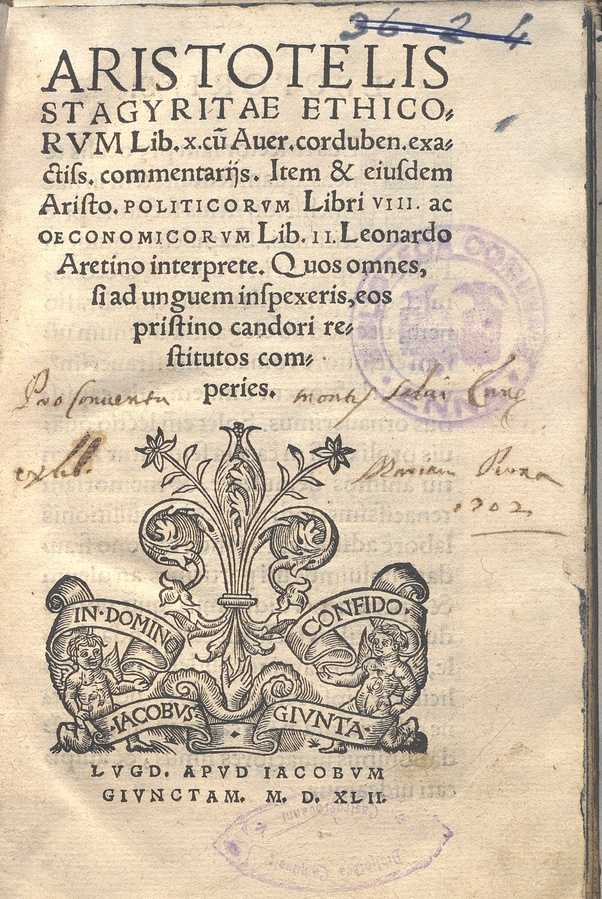 36-2-4
ARISTOTELIS
STAGYRITAE ETHICO-
RVM Lib. x. cū Auer. corduben. exa-
ctiss. commentarijs. Item & eiusdem
Aristo. POLITICORVM Libri VIII. ac
OECONOMICORVM Lib. II. Leonardo
Aretino interprete. Quos omnes,
si ad unguem inspexeris, eos
pristino candori re-
stitutos com-
peries.
Pro Conventu montis
1702
IN · DOMINO CONFIDO ·
· IACOBVS GIVNTA ·
LVGD. APVD IACOBVM
GIVNCTAM. M. D. XLII.